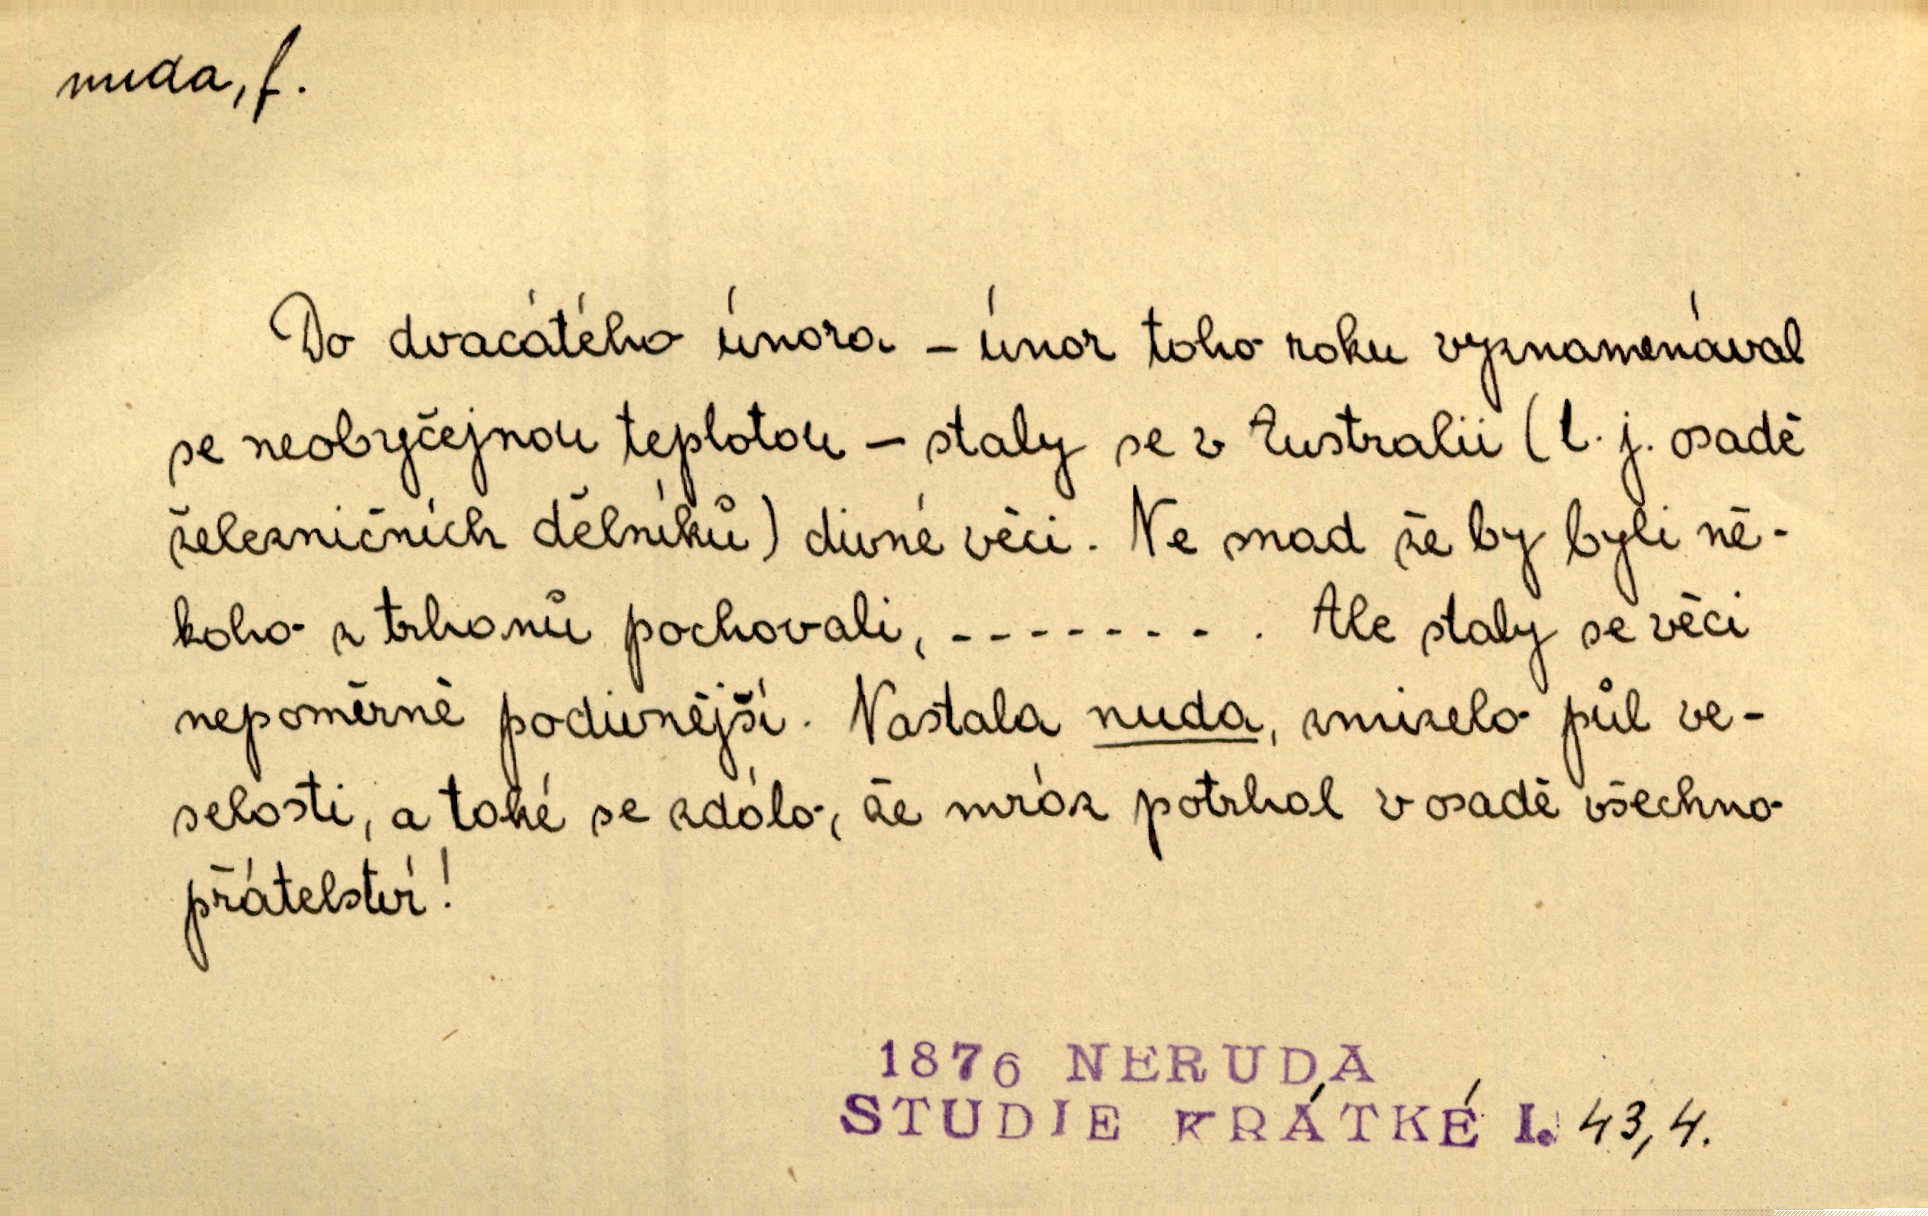 nuda, f.
Do dvacátého února - únor toho roku vyznamenával
se neobyčejnou teplotou - staly se v Australii (t. j. osadě
železničních dělníků) divné věci. Ne snad že by byli ně-
koho z trhanů pochovali, - - - - - - - - . Ale staly se věci
nepoměrně podivnější. Nastala nuda, zmizelo půl ve-
selosti, a také se zdálo, že mráz potrhal v osadě všechno
přátelství!
1876 NERUDA
STUDIE KRÁTKÉ I. 43,4.